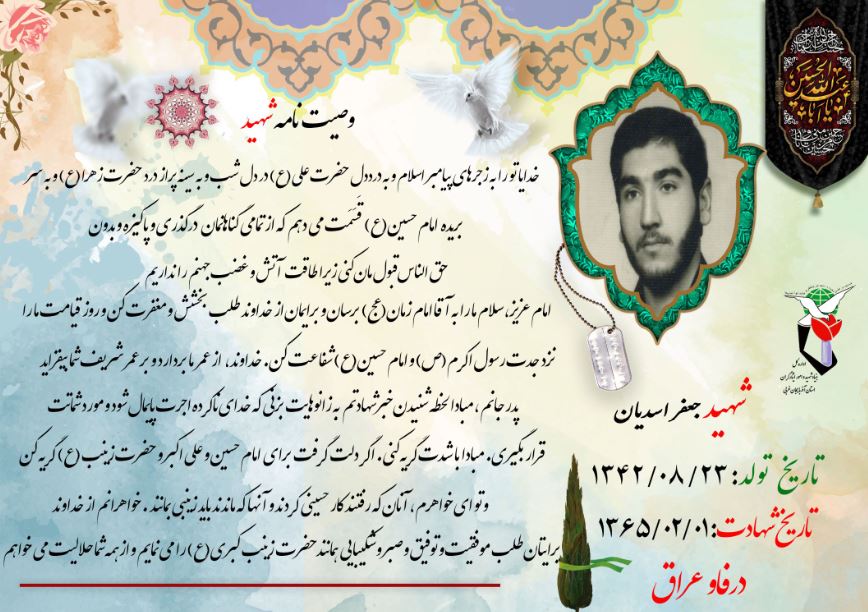 وصیت نامه شهید
خدایا تو را به زجرهای پیامبر اسلام و به درد دل حضرت علی (ع) در دل شب و به سینه پر از درد حضرت زهرا (ع) و به سر
بریده امام حسین (ع) قَسَمت می دهم که از تمامی گناهانمان درگذری و پاکیزه و بدون
حق الناس قبول مان کنی زیرا طاقت آتش و غضب جهنم را نداریم
امام عزیز، سلام ما را به آقا امام زمان (عج) برسان و برایمان از خداوند طلب بخشش و مغفرت کن و روز قیامت ما را
نزد جدت رسول اکرم (ص) و امام حسین (ع) شفاعت کن. خداوند، از عمر ما بردارد و بر عمر شریف شما بیفزاید
پدر جانم، مبادا لحظه شنیدن خبر شهادتم به زانوهایت بزنی که خدای ناکرده اجرت پایمال شود و مورد شماتت
قرار بگیری. مبادا با شدت گریه کنی. اگر دلت گرفت برای امام حسین و علی اکبر و حضرت زینب (ع) گریه کن
و تو ای خواهرم، آنان که رفتند کار حسینی کردند و آنها که ماندند باید زینبی بمانند. خواهرانم از خداوند
برایتان طلب موفقیت و توفیق و صبر و شکیبایی همانند حضرت زینب کبری (ع) را می نمایم و از همه شما حلالیت می خواهم
یا اباعبدالله الحسین
اداره کل
بنیاد شهید و امور ایثارگران
استان آذربایجان غربی
شهید جعفر اسدیان
تاریخ تولد: ۱۳۴۲/۰۸/۲۳
تاریخ شهادت: ۱۳۶۵/۰۲/۰۱
در فاو عراق